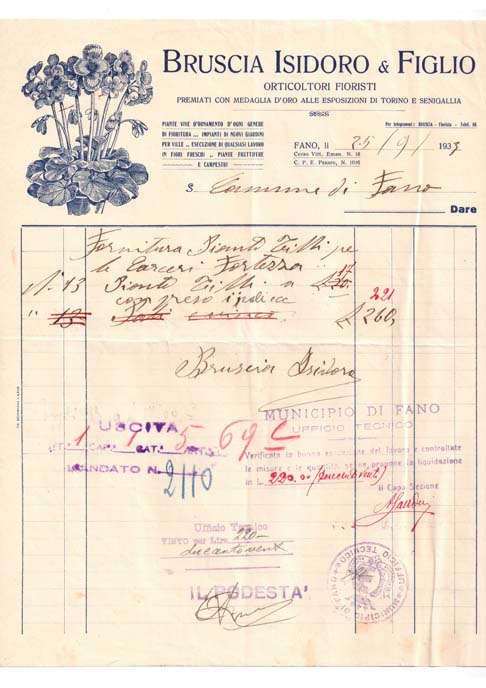 BRUSCIA ISIDORO & FIGLIO
ORTICOLTORI FIORISTI
PREMIATI CON MEDAGLIA D'ORO ALLE ESPOSIZIONI DI TORINO E SENIGALLIA
PIANTE VIVE D'ORNAMENTO D'OGNI GENERE
DI FIORITURA - IMPIANTI DI NUOVI GIARDINI
PER VILLE - ESECUZIONE DI QUALSIASI LAVORO
IN FIORI FRESCHI - PIANTE FRUTTIFERE
E CAMPESTRI
Per telegrammi: BRUSCIA - Fiorista - Telef.
FANO, li 25/9/1939
Corso Vitt. Eman. N.
C. P. E. Pesaro, N.
S. Comune di Fano
Dare
Fornitura Pianti Tilli pe
le Carceri Fortezza
17
N. 13 Pianti Tilli a £ 20.
compreso
221
" 13 £ 260,
Bruscia Isidoro
USCITA
MUNICIPIO DI FANO
UFFICIO TECNICO
TIT. 1 CAP. 9 CAT. 5 ART. 69 C
Verificata la buona esecuzione del lavoro e controllate
le misure e le quantità, se ne propone la liquidazione
in L. 220.00 (duecentoventi)
MANDATO N. 2110
Il Capo Sezione
Ufficio Tecnico
VISTO per Lire 220-
IL PODESTA'
MUNICIPIO DI FANO UFFICIO TECNICO